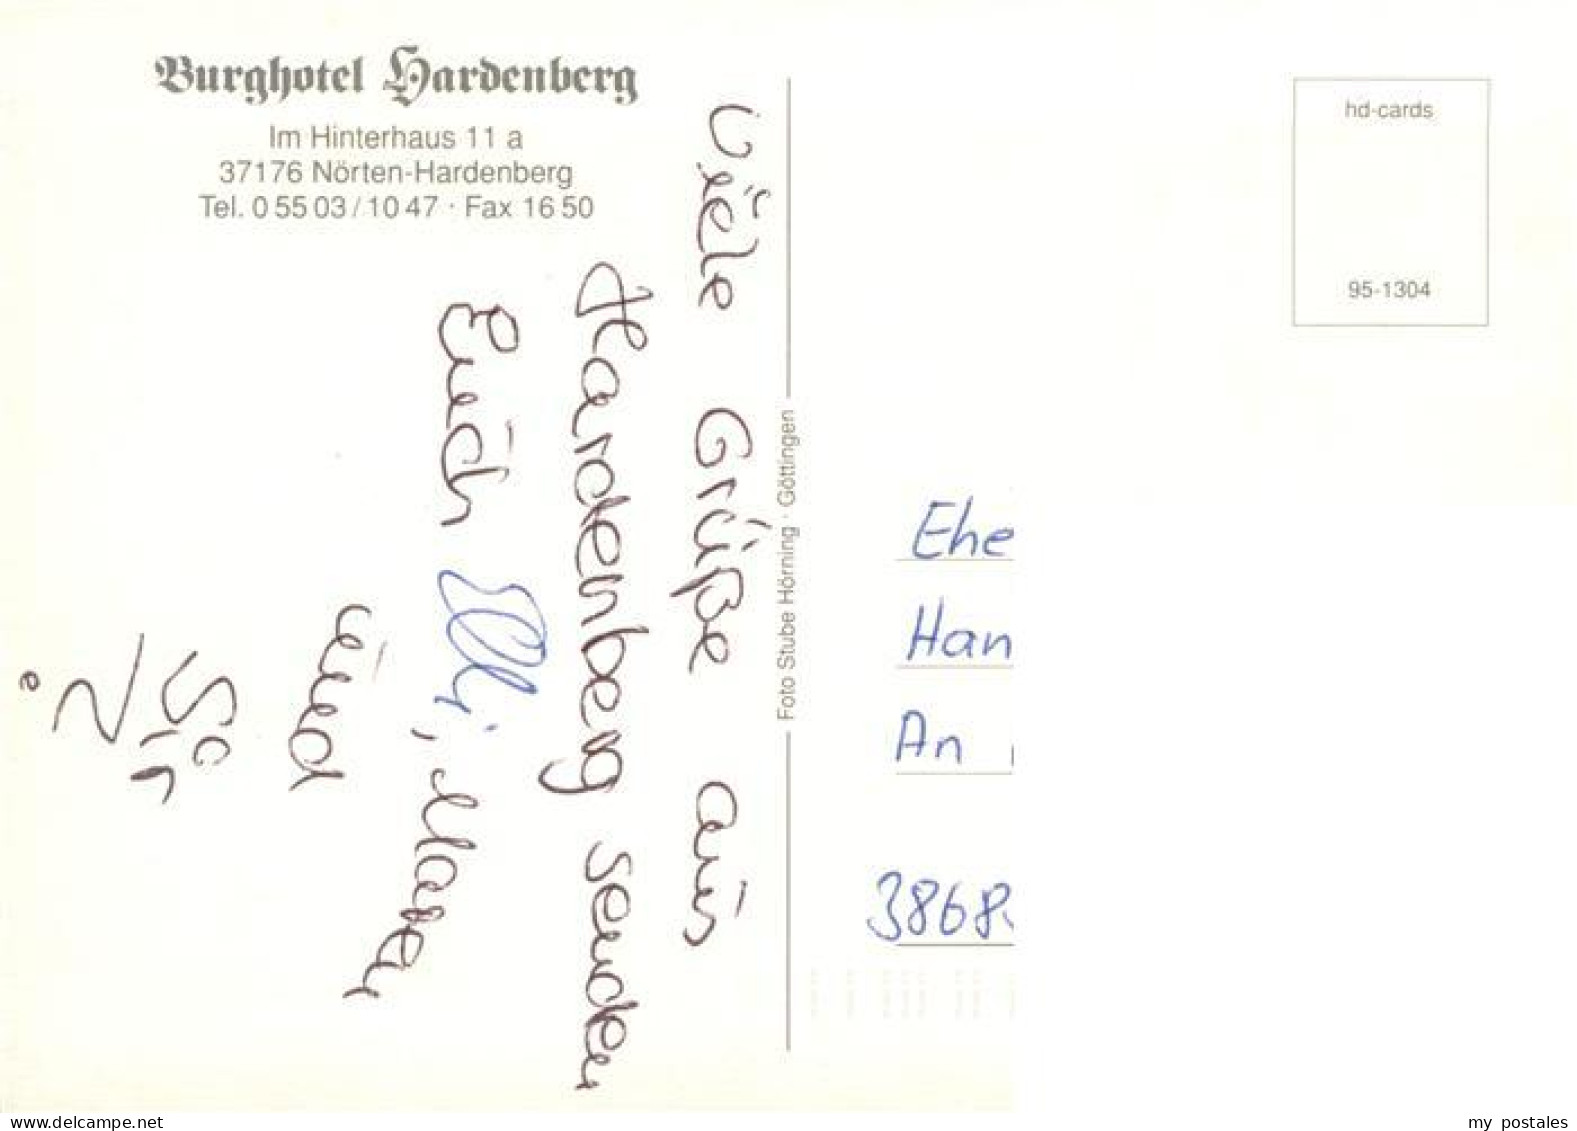 Burghotel Hardenberg
Im Hinterhaus 11 a
37176 Nörten-Hardenberg
Tel. 0 55 03 / 10 47 · Fax 16 50
Viele Grüße aus
Hardenberg senden
Euch Elli,
und
Foto Stube Hörning · Göttingen
hd-cards
95-1304
Ehe
Han
An
3868
delcampe.net
my postales